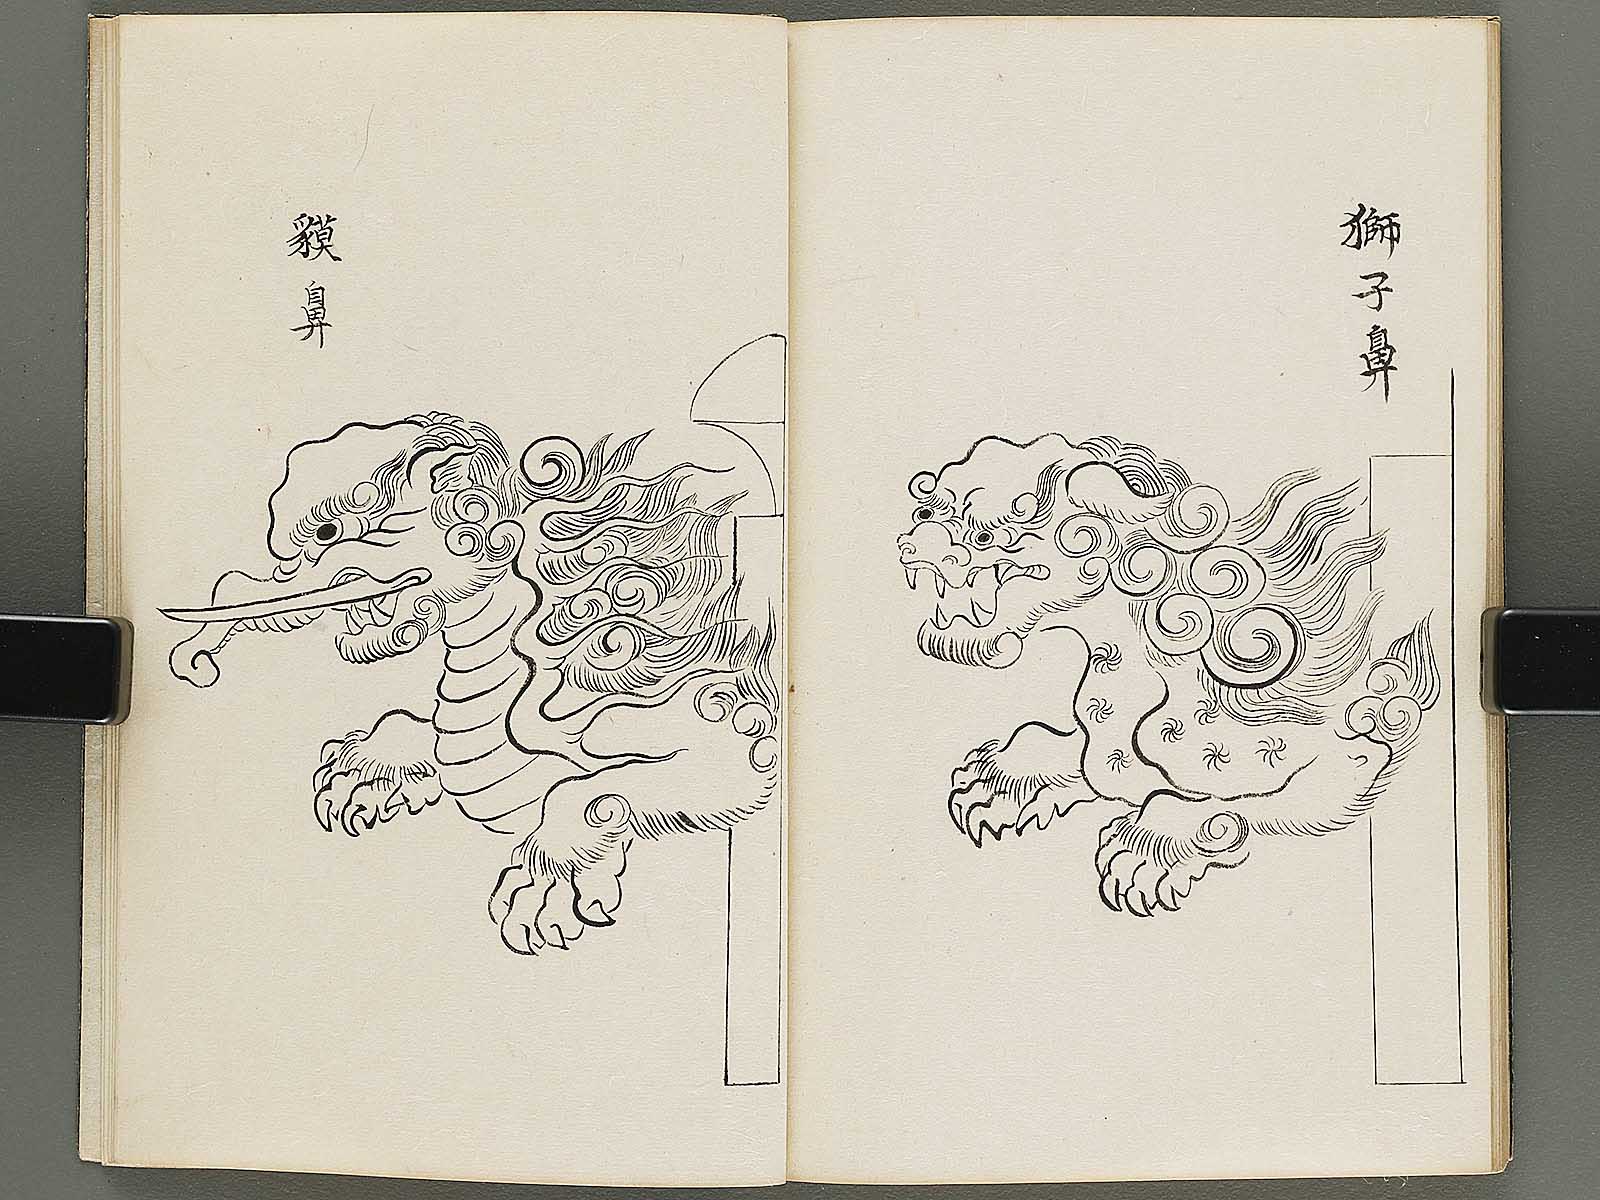 獅子鼻
貘鼻